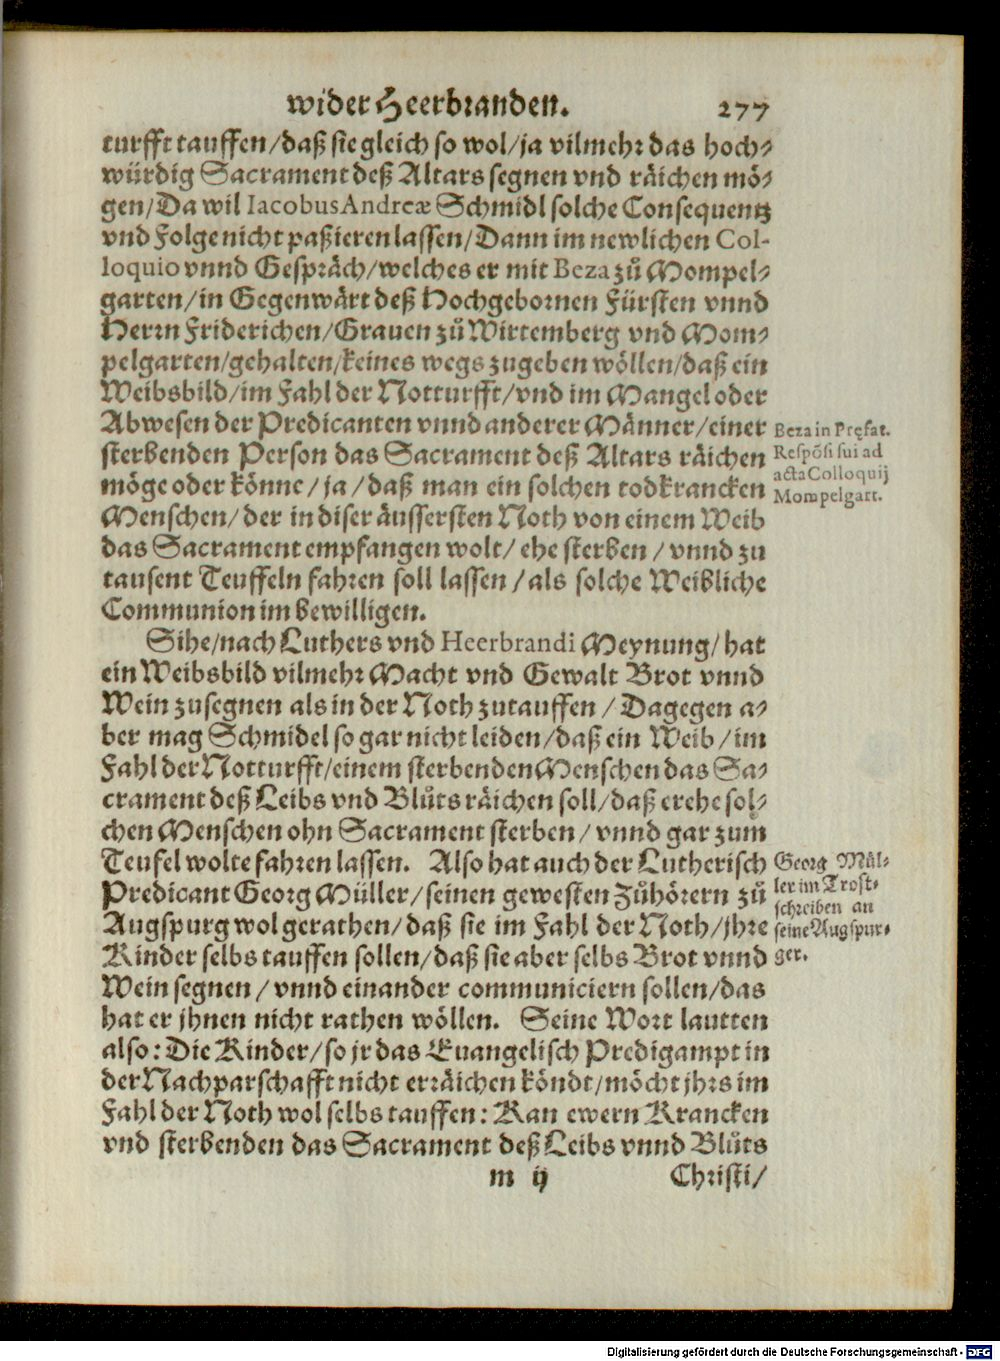 wider Heerbranden. 277
turfft tauffen/daß sie gleich so wol/ja vilmehr das hoch-
würdig Sacrament deß Altars segnen vnd räichen mö-
gen/Da wil Iacobus Andreæ Schmidl solche Consequentz
vnd Folge nicht paßieren lassen/Dann im newlichen Col-
loquio vnnd Gespräch/welches er mit Beza zů Mompel-
garten/in Gegenwärt deß Hochgebornen Fürsten vnnd
Herrn Friderichen/Grauen zů Wirtemberg vnd Mom-
pelgarten/gehalten/keines wegs zugeben wöllen/daß ein
Weibsbild/im Fahl der Notturfft/vnd im Mangel oder
Abwesen der Predicanten vnnd anderer Männer/einer
sterbenden Person das Sacrament deß Altars räichen
möge oder könne/ja/daß man ein solchen todkrancken
Menschen/der in diser äussersten Noth von einem Weib
das Sacrament empfangen wolt/ehe sterben/vnnd zu
tausent Teuffeln fahren soll lassen/als solche Weibliche
Communion im bewilligen.
Beza in Pręfat.
Respõsi sui ad
acta Colloquij
Mompelgart.
Sihe/nach Luthers vnd Heerbrandi Meynung/hat
ein Weibsbild vilmehr Macht vnd Gewalt Brot vnnd
Wein zusegnen als in der Noth zutauffen/Dagegen a-
ber mag Schmidel so gar nicht leiden/daß ein Weib/im
Fahl der Notturfft/einem sterbenden Menschen das Sa-
crament deß Leibs vnd Blůts räichen soll/daß er ehe sol-
chen Menschen ohn Sacrament sterben/vnnd gar zum
Teufel wolte fahren lassen. Also hat auch der Lutherisch
Predicant Georg Müller/seinen gewesten Zůhörern zů
Augspurg wol gerathen/daß sie im Fahl der Noth/jhre
Kinder selbs tauffen sollen/daß sie aber selbs Brot vnnd
Wein segnen/vnnd einander communiciern sollen/das
hat er jhnen nicht rathen wöllen. Seine Wort lautten
also: Die Kinder/so jr das Euangelisch Predigampt in
der Nachparschafft nicht erräichen köndt/möcht jhrs im
Fahl der Noth wol selbs tauffen: Kan ewern Krancken
vnd sterbenden das Sacrament deß Leibs vnnd Blůts
Georg Mül-
ler im Trost-
schreiben an
seine Augspur-
ger.
m ij Christi/
Digitalisierung gefördert durch die Deutsche Forschungsgemeinschaft - DFG